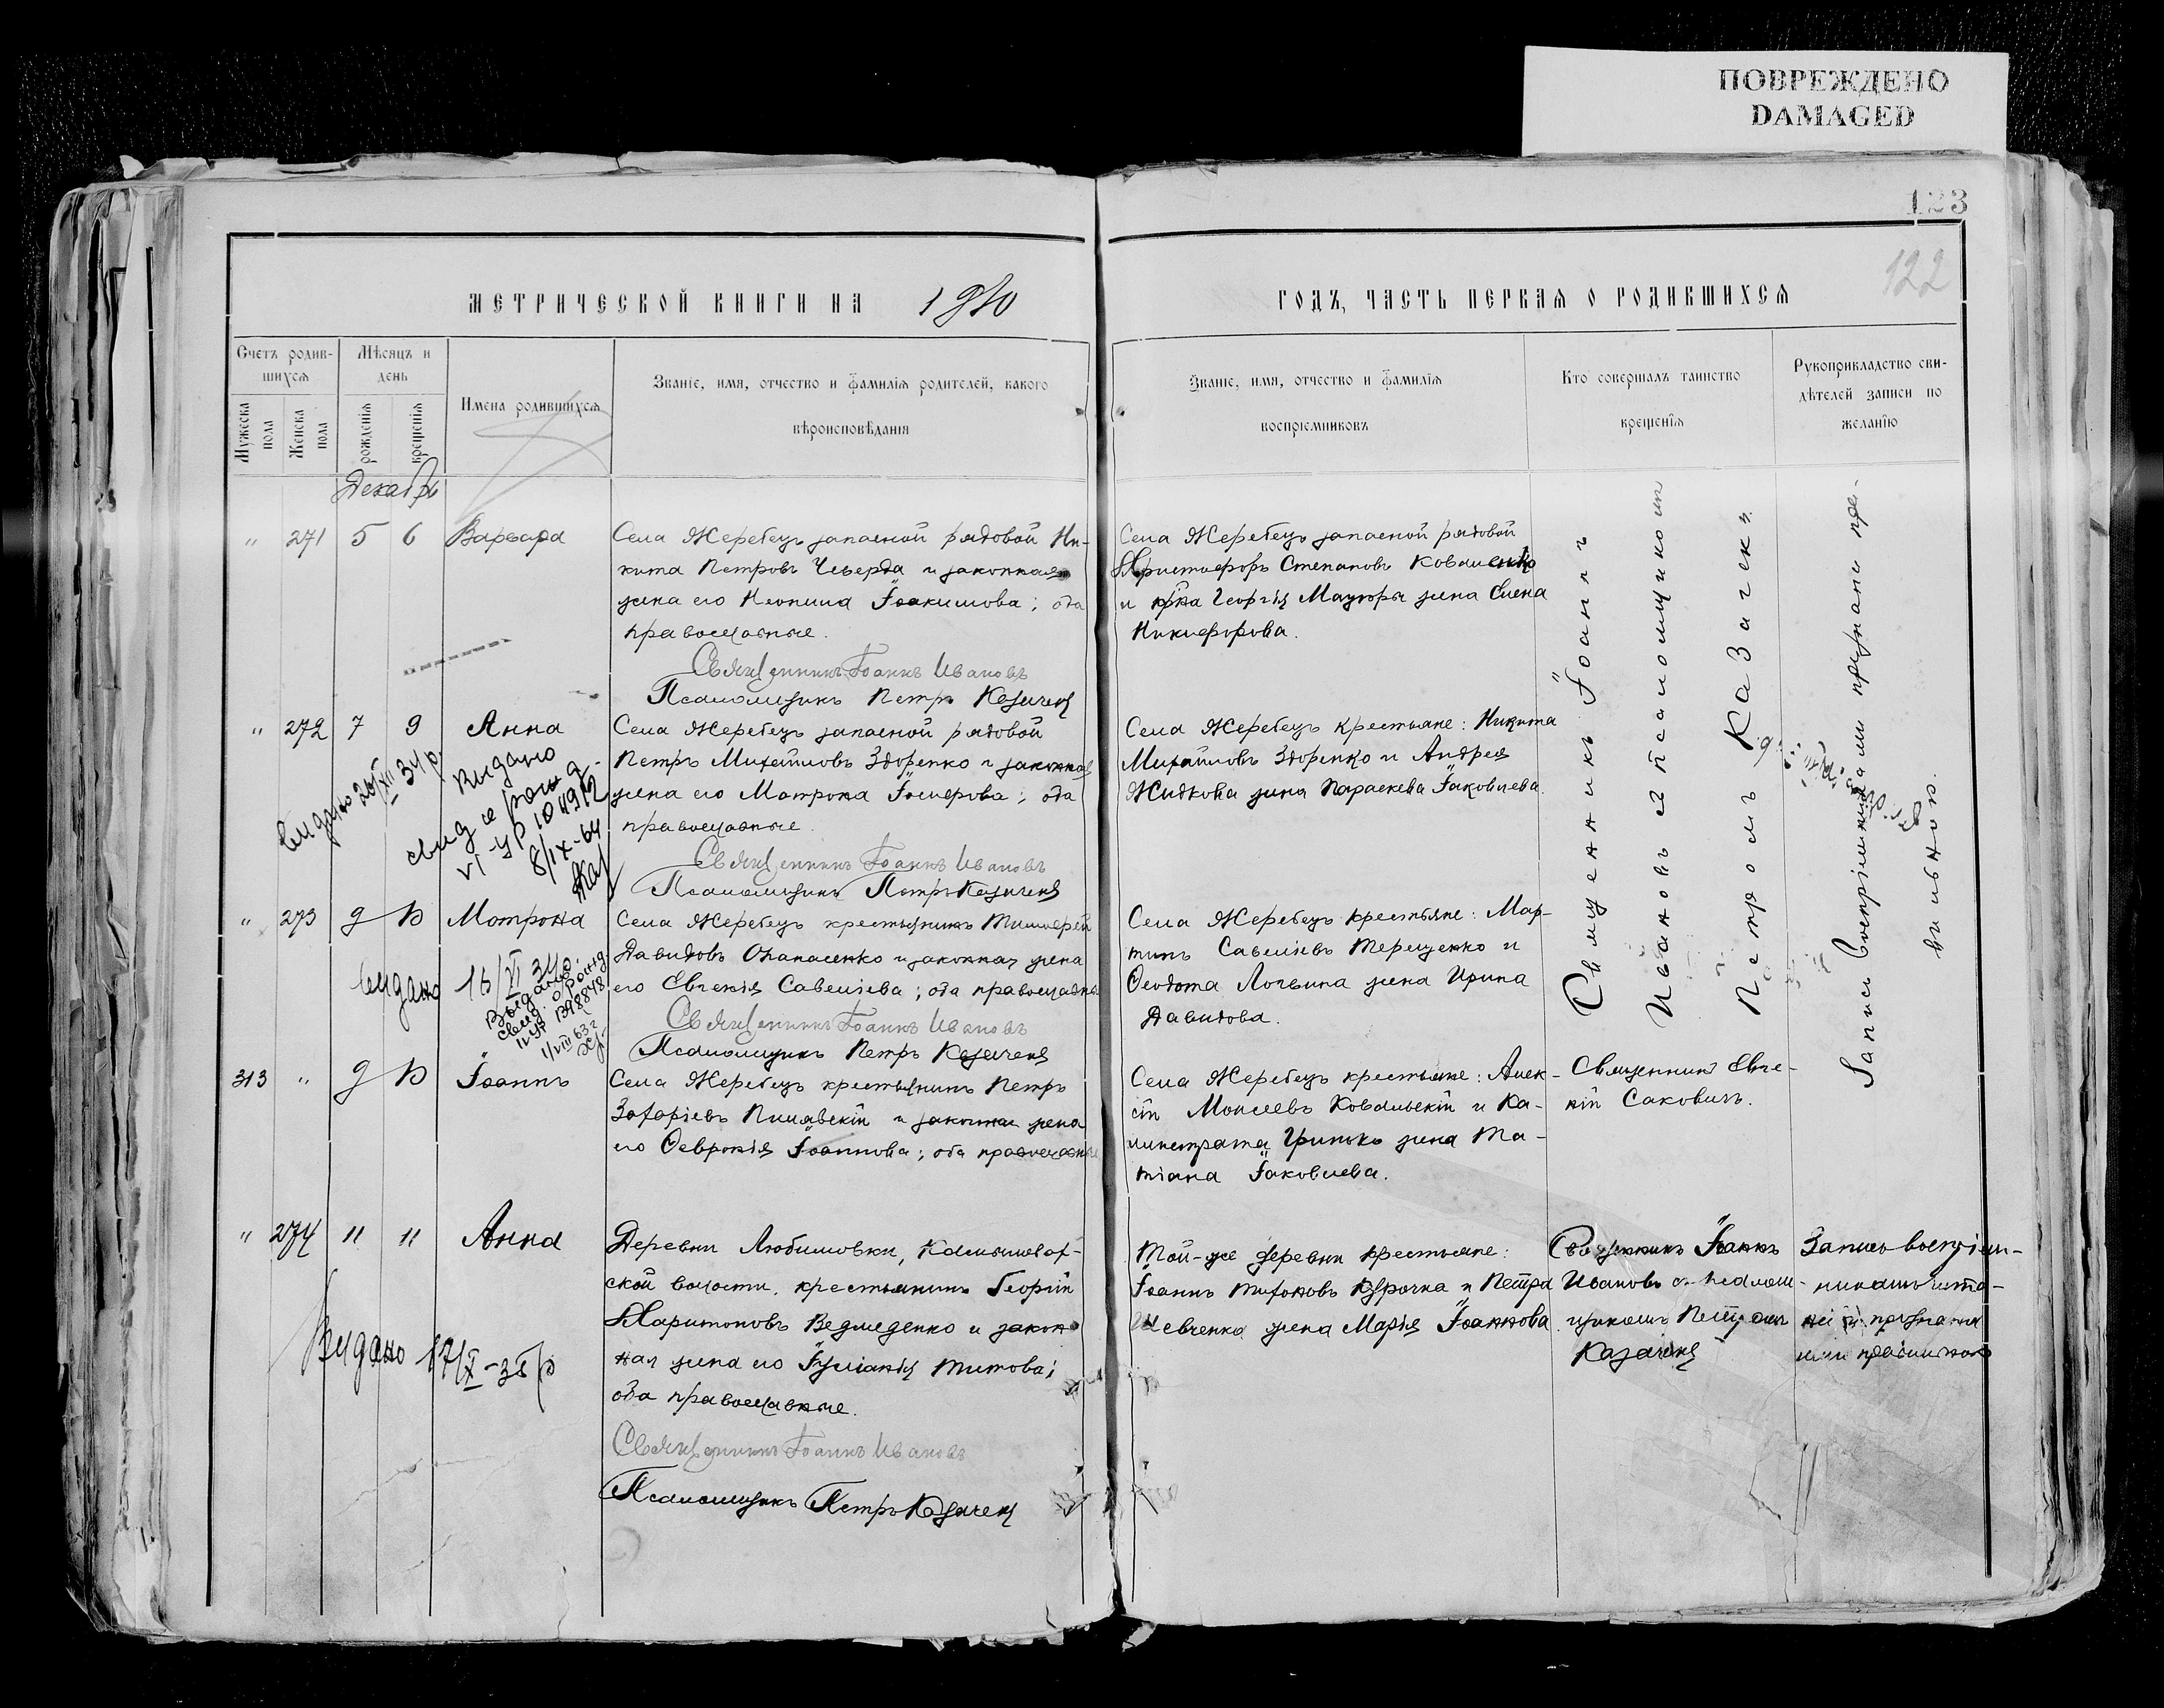 ПОВРЕЖДЕНО
DAMAGED
123
122
МЕТРИЧЕСКОЙ КНИГИ НА 1910
ГОДЪ, ЧАСТЬ ПЕРВАЯ О РОДИВШИХСЯ
Счетъ родив-
шихся
Мужеска пола
Женска пола
Мѣсяцъ и
день
рожденія
крещенія
Имена родившихся
Званіе, имя, отчество и фамилія родителей, какого
вѣроисповѣданія
Званіе, имя, отчество и фамилія
воспріемниковъ
Кто совершалъ таинство
крещенія
Рукоприкладство сви-
дѣтелей записи по
желанію
Декабрь
" 271 5 6 Варвара
Села Жеребецъ запасной рядовой Ни-
кита Петровъ Чверда и законная
жена его Іоакимова; оба
православные.
Священникъ Іоаннъ Ивановъ
Псаломщикъ Петръ Казачекъ
Села Жеребецъ запасной рядовой
Христофоръ Степановъ Коваленко
и Георгія Мазуры жена Елена
Никифорова.
" 272 7 9 Анна
Села Жеребецъ запасной рядовой
Петръ Михайловъ Здоренко и законная
жена его Матрона Іосифова; оба
православные.
Священникъ Іоаннъ Ивановъ
Псаломщикъ Петръ Казачекъ
Села Жеребецъ крестьяне: Никита
Михайловъ Здоренко и Андрея
Жидкова жена Параскева Іаковлева.
Видано 34 р.
Видано
свид о рожд.
VI-УР 104912
8/IX-64
" 273 9 10 Матрона
Села Жеребецъ крестьянинъ Тимофей
Давидовъ Опанасенко и законная жена
его Евгенія Савеліева; оба православные
Священникъ Іоаннъ Ивановъ
Псаломщикъ Петръ Казачекъ
Села Жеребецъ крестьяне: Мар-
тинъ Савеліевъ Терещенко и
Феодота Логвина жена Ирина
Давидова.
видано 16/VI 34р.
Выдано
свид. о рожд
1/VIII 63 г
313 " 9 10 Іоаннъ
Села Жеребецъ крестьянинъ Петръ
Захаріевъ Пилявскій и законная жена
его Февронія Іоаннова; оба православные
Села Жеребецъ крестьяне: Алек-
сій Моисеевъ Ковальскій и Ка-
листрата Гринько жена Та-
тіана Іаковлева.
Священникъ Евге-
ній Саковичъ.
" 274 11 11 Анна
Деревни Любимовки, Камышеват-
ской волости, крестьянинъ Георгій
Харитоновъ Ведмеденко и закон-
ная жена его Іуліанія Титова;
оба православные.
Священникъ Іоаннъ Ивановъ
Псаломщикъ Петръ Казачекъ
Той-же деревни крестьяне:
Іоаннъ Тихоновъ Курочка и Петра
Шевченка жена Марія Іоаннова.
Священникъ Іоаннъ
Ивановъ съ псалом-
щикомъ Петромъ
Казачекъ
Запись воспріем-
никами чита-
на и признана
ими правильною
Видано 17/X-35р
Священникъ Іоаннъ
Ивановъ съ псаломщикомъ
Петромъ Казачекъ.
Запись воспріемниками признана пра-
вильною.